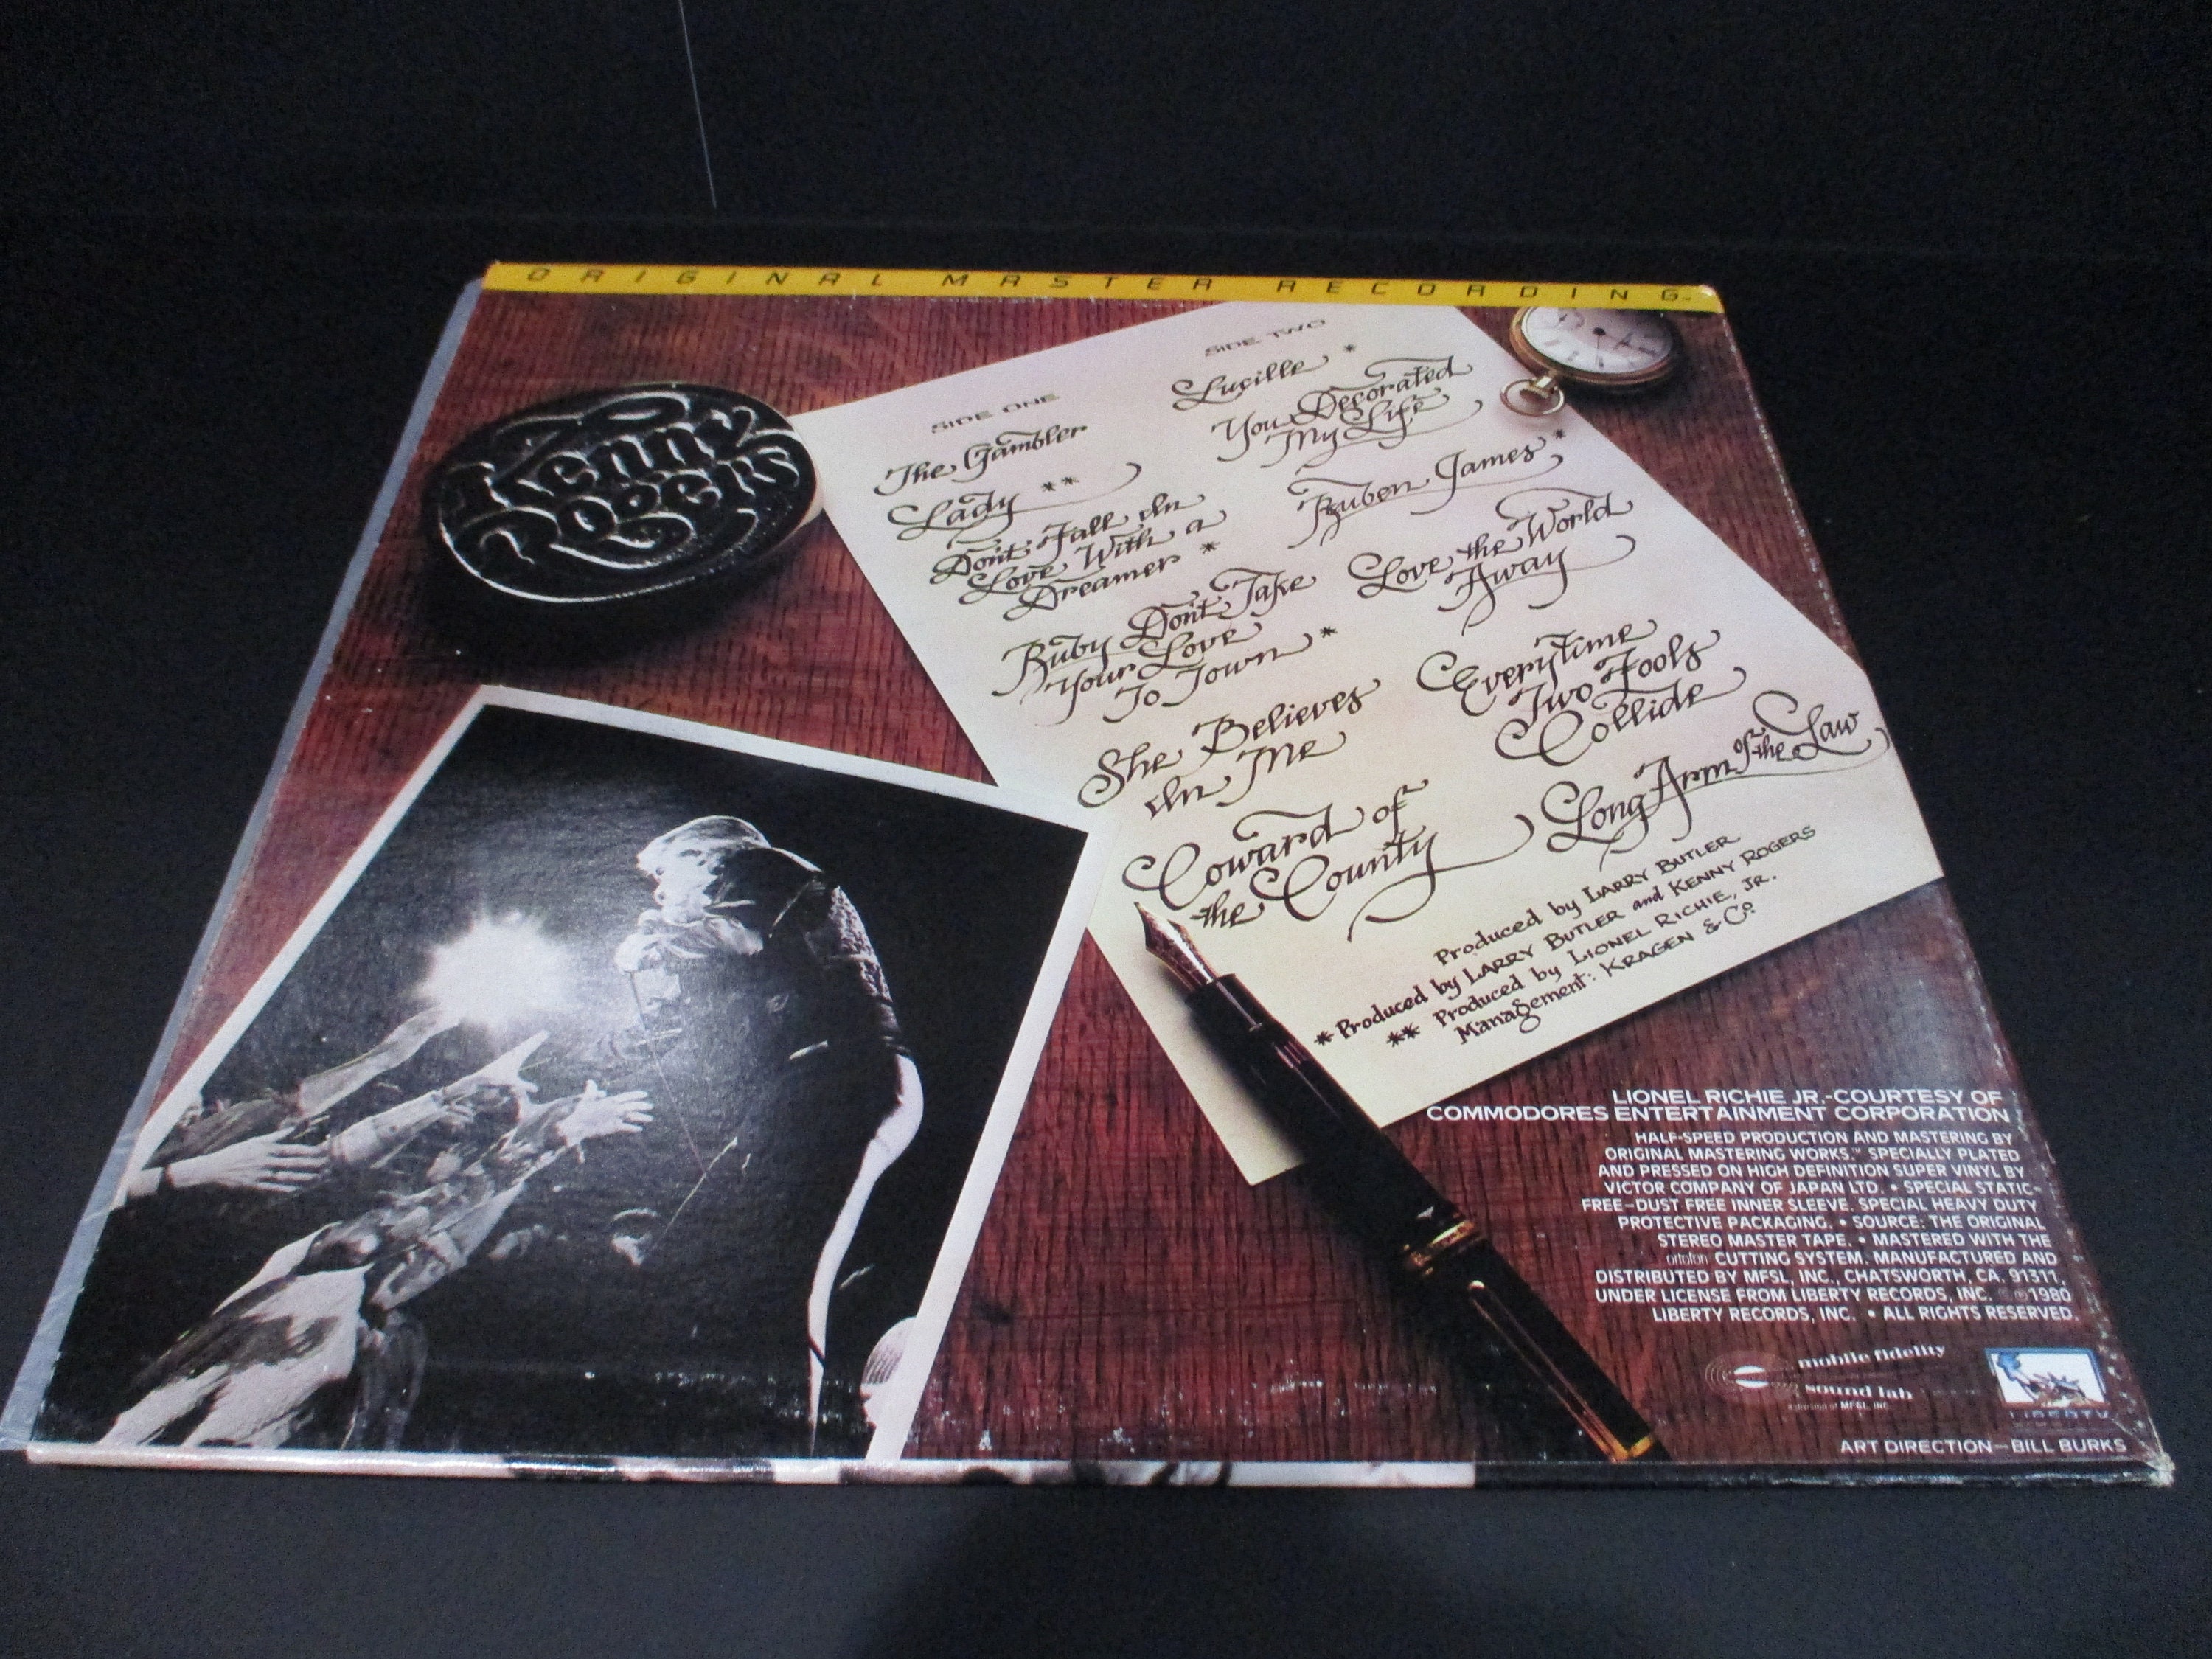 ORIGINAL MASTER RECORDING™
Kenny
Rogers
SIDE ONE
The Gambler
Lady **
Don't Fall In
Love With a
Dreamer *
Ruby Don't Take
Your Love
To Town *
She Believes
In Me
Coward of
the County
SIDE TWO
Lucille *
You Decorated
My Life
Ruben James *
Love the World
Away
Everytime
Two Fools
Collide
Long Arm of the Law
Produced by LARRY BUTLER
* Produced by LARRY BUTLER and KENNY ROGERS
** Produced by LIONEL RICHIE, JR.
Management: KRAGEN & Co.
LIONEL RICHIE JR.-COURTESY OF
COMMODORES ENTERTAINMENT CORPORATION
HALF-SPEED PRODUCTION AND MASTERING BY
ORIGINAL MASTERING WORKS.™ SPECIALLY PLATED
AND PRESSED ON HIGH DEFINITION SUPER VINYL BY
VICTOR COMPANY OF JAPAN LTD. • SPECIAL STATIC-
FREE-DUST FREE INNER SLEEVE. SPECIAL HEAVY DUTY
PROTECTIVE PACKAGING. • SOURCE: THE ORIGINAL
STEREO MASTER TAPE. • MASTERED WITH THE
ortofon CUTTING SYSTEM. MANUFACTURED AND
DISTRIBUTED BY MFSL, INC., CHATSWORTH, CA. 91311,
UNDER LICENSE FROM LIBERTY RECORDS, INC. ©℗1980
LIBERTY RECORDS, INC. • ALL RIGHTS RESERVED.
mobile fidelity
sound lab
a division of MFSL, INC.
LIBERTY
ART DIRECTION—BILL BURKS